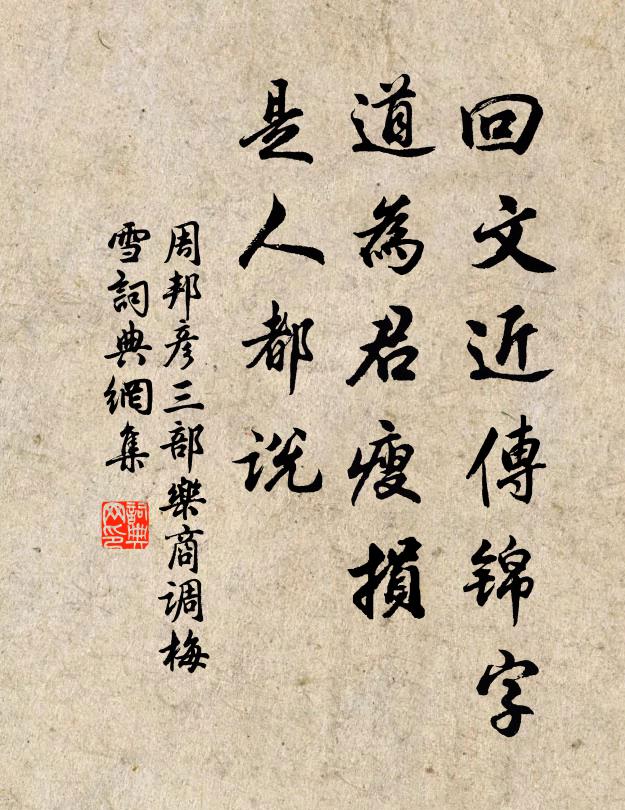 回文近傳锦字
道為君瘦損
是人都说
周邦彦三部樂商调梅
雪詞典網集
詞典网印